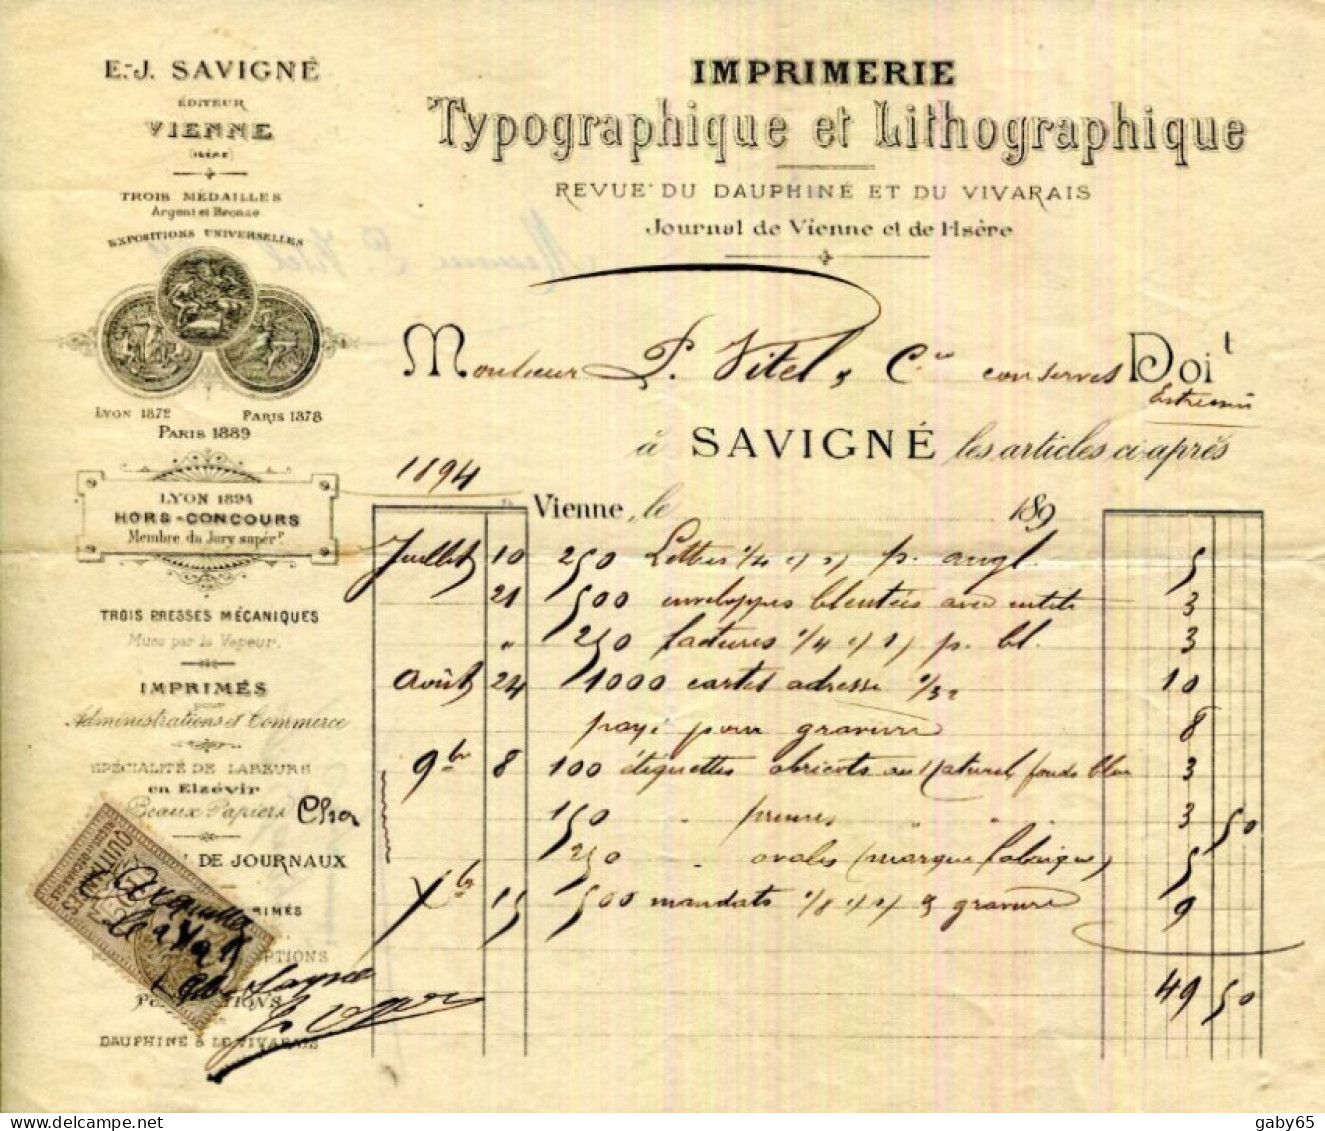 E.-J. SAVIGNÉ
ÉDITEUR
VIENNE
(ISÈRE)
TROIS MÉDAILLES
Argent et Bronze
EXPOSITIONS UNIVERSELLES
LYON 1872
PARIS 1878
PARIS 1889
LYON 1894
HORS-CONCOURS
Membre du Jury supér.r
TROIS PRESSES MÉCANIQUES
Mues par la Vapeur.
IMPRIMÉS
pour
Administrations et Commerce
SPÉCIALITÉ DE LABEURS
en Elzévir
Beaux Papiers
DE JOURNAUX
DAUPHINÉ & LE VIVARAIS
IMPRIMERIE
Typographique et Lithographique
REVUE DU DAUPHINÉ ET DU VIVARAIS
Journal de Vienne et de l'Isère
Monsieur P. Vitel & Cie conserves Doit
à SAVIGNÉ les articles ci-après
1894
Vienne, le 189
Juillet 10 250 Lettres 1/4 p. angl. 5
21 500 enveloppes bleutées avec entête 3
" 250 factures 1/4 p. bl. 3
Août 24 1000 cartes adresse 1/32 10
payé pour gravure 8
9bre 8 100 étiquettes abricots au Naturel fonds bleu 3
150 " prunes " " 3 50
250 " ovales (marque fabrique) 5
Xbre 15 500 mandats 1/8 & gravure 9
49 50
QUITTANCES
gaby65